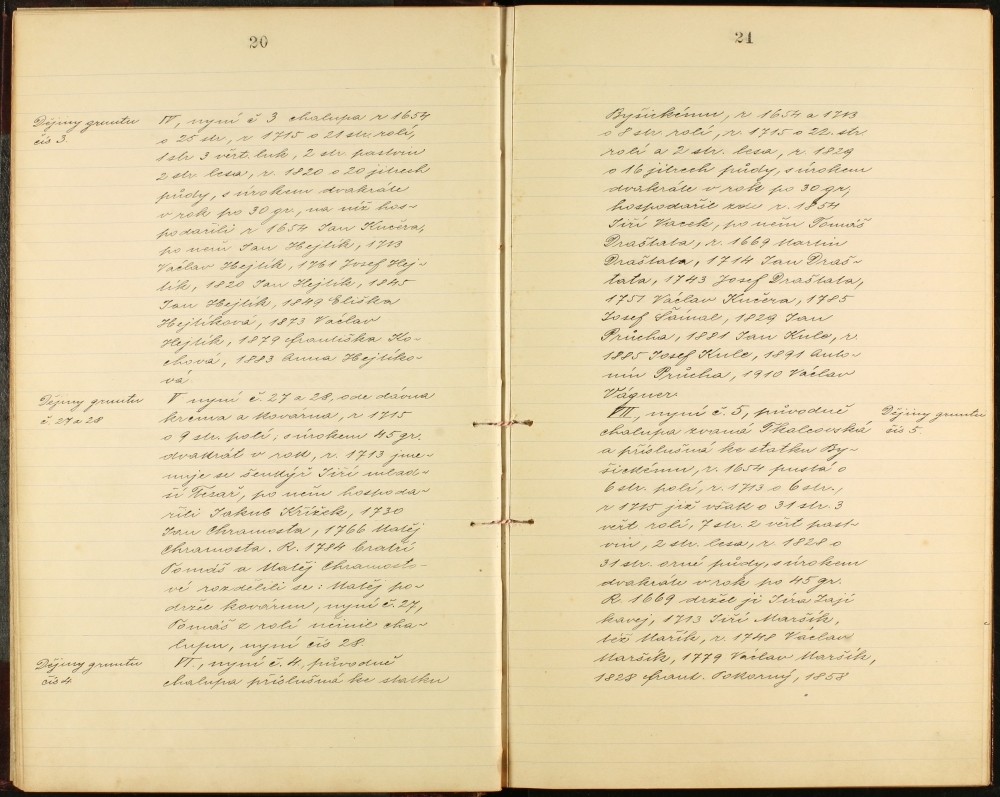 20
Dějiny gruntu
čís 3.
IV, nyní č 3 chalupa r 1654
o 25 str, r 1715 o 21 str. rolí,
1 str 3 věrt. luk, 2 str. pastvin
2 str. lesa, r. 1820 o 20 jitrech
půdy, s úrokem dvakráte
v rok po 30 gr., na níž hos-
podařili r 1654 Jan Kučera,
po něm Jan Hejtík, 1713
Václav Hejtík, 1761 Josef Hej-
tík, 1820 Jan Hejtík, 1845
Jan Hejtík, 1849 Eliška
Hejtíková, 1873 Václav
Hejtík, 1879 Františka Ko-
chová, 1883 Anna Hejtíko-
vá.
Dějiny gruntu
č. 27 a 28
V nyní č. 27 a 28, ode dávna
krčma a kovárna, r 1715
o 9 str. polí; s úrokem 45 gr.
dvakrát v rok, r. 1713 jme-
nuje se šenkýř Jiří mlad-
ší Tesař, po něm hospoda-
řili Jakub Křížek, 1730
Jan Chramosta, 1766 Matěj
Chramosta. R. 1784 bratří
Tomáš a Matěj Chramosto-
vé rozdělili se: Matěj po-
držel kovárnu, nyní č. 27,
Tomáš z rolí učinil cha-
lupu, nyní čís 28.
Dějiny gruntu
čís 4.
VI., nyní č. 4, původně
chalupa příslušná ke statku
21
Byšickému, r. 1654 a 1713
o 8 str rolí, r. 1715 o 22. str
rolí a 2 str. lesa, r. 1829
o 16 jitrech půdy, s úrokem
dvakráte v rok po 30 gr,
hospodařil zde r. 1654
Jiří Vacek, po něm Tomáš
Draštata, r. 1669 Martin
Draštata, 1714 Jan Draš-
tata, 1743 Josef Draštata,
1751 Václav Kučera, 1785
Josef Šámal, 1829 Jan
Průcha, 1881 Jan Kule, r.
1885 Josef Kule, 1891 Anto-
nín Průcha, 1910 Václav
Vágner.
Dějiny gruntu
čís 5.
VII, nyní č. 5, původně
chalupa zvaná Tkalcovská
a příslušná ke statku By-
šickému, r. 1654 pustá o
6 str. polí, r. 1713 o 6 str.,
r 1715 již však o 31 str. 3
věrt rolí, 7 str. 2 věrt past-
vin, 2 str. lesa, r. 1828 o
31 str. orné půdy, s úrokem
dvakráte v rok po 45 gr.
R. 1669 držel ji Jíra Zají
kavej, 1713 Jiří Maršík,
též Mařík, r. 1748 Václav
Maršík, 1779 Václav Maršík,
1828 Frant. Pokorný, 1858